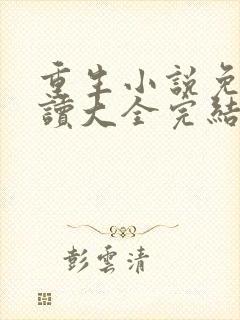 重生小說免
讀大全完結
彭雲清